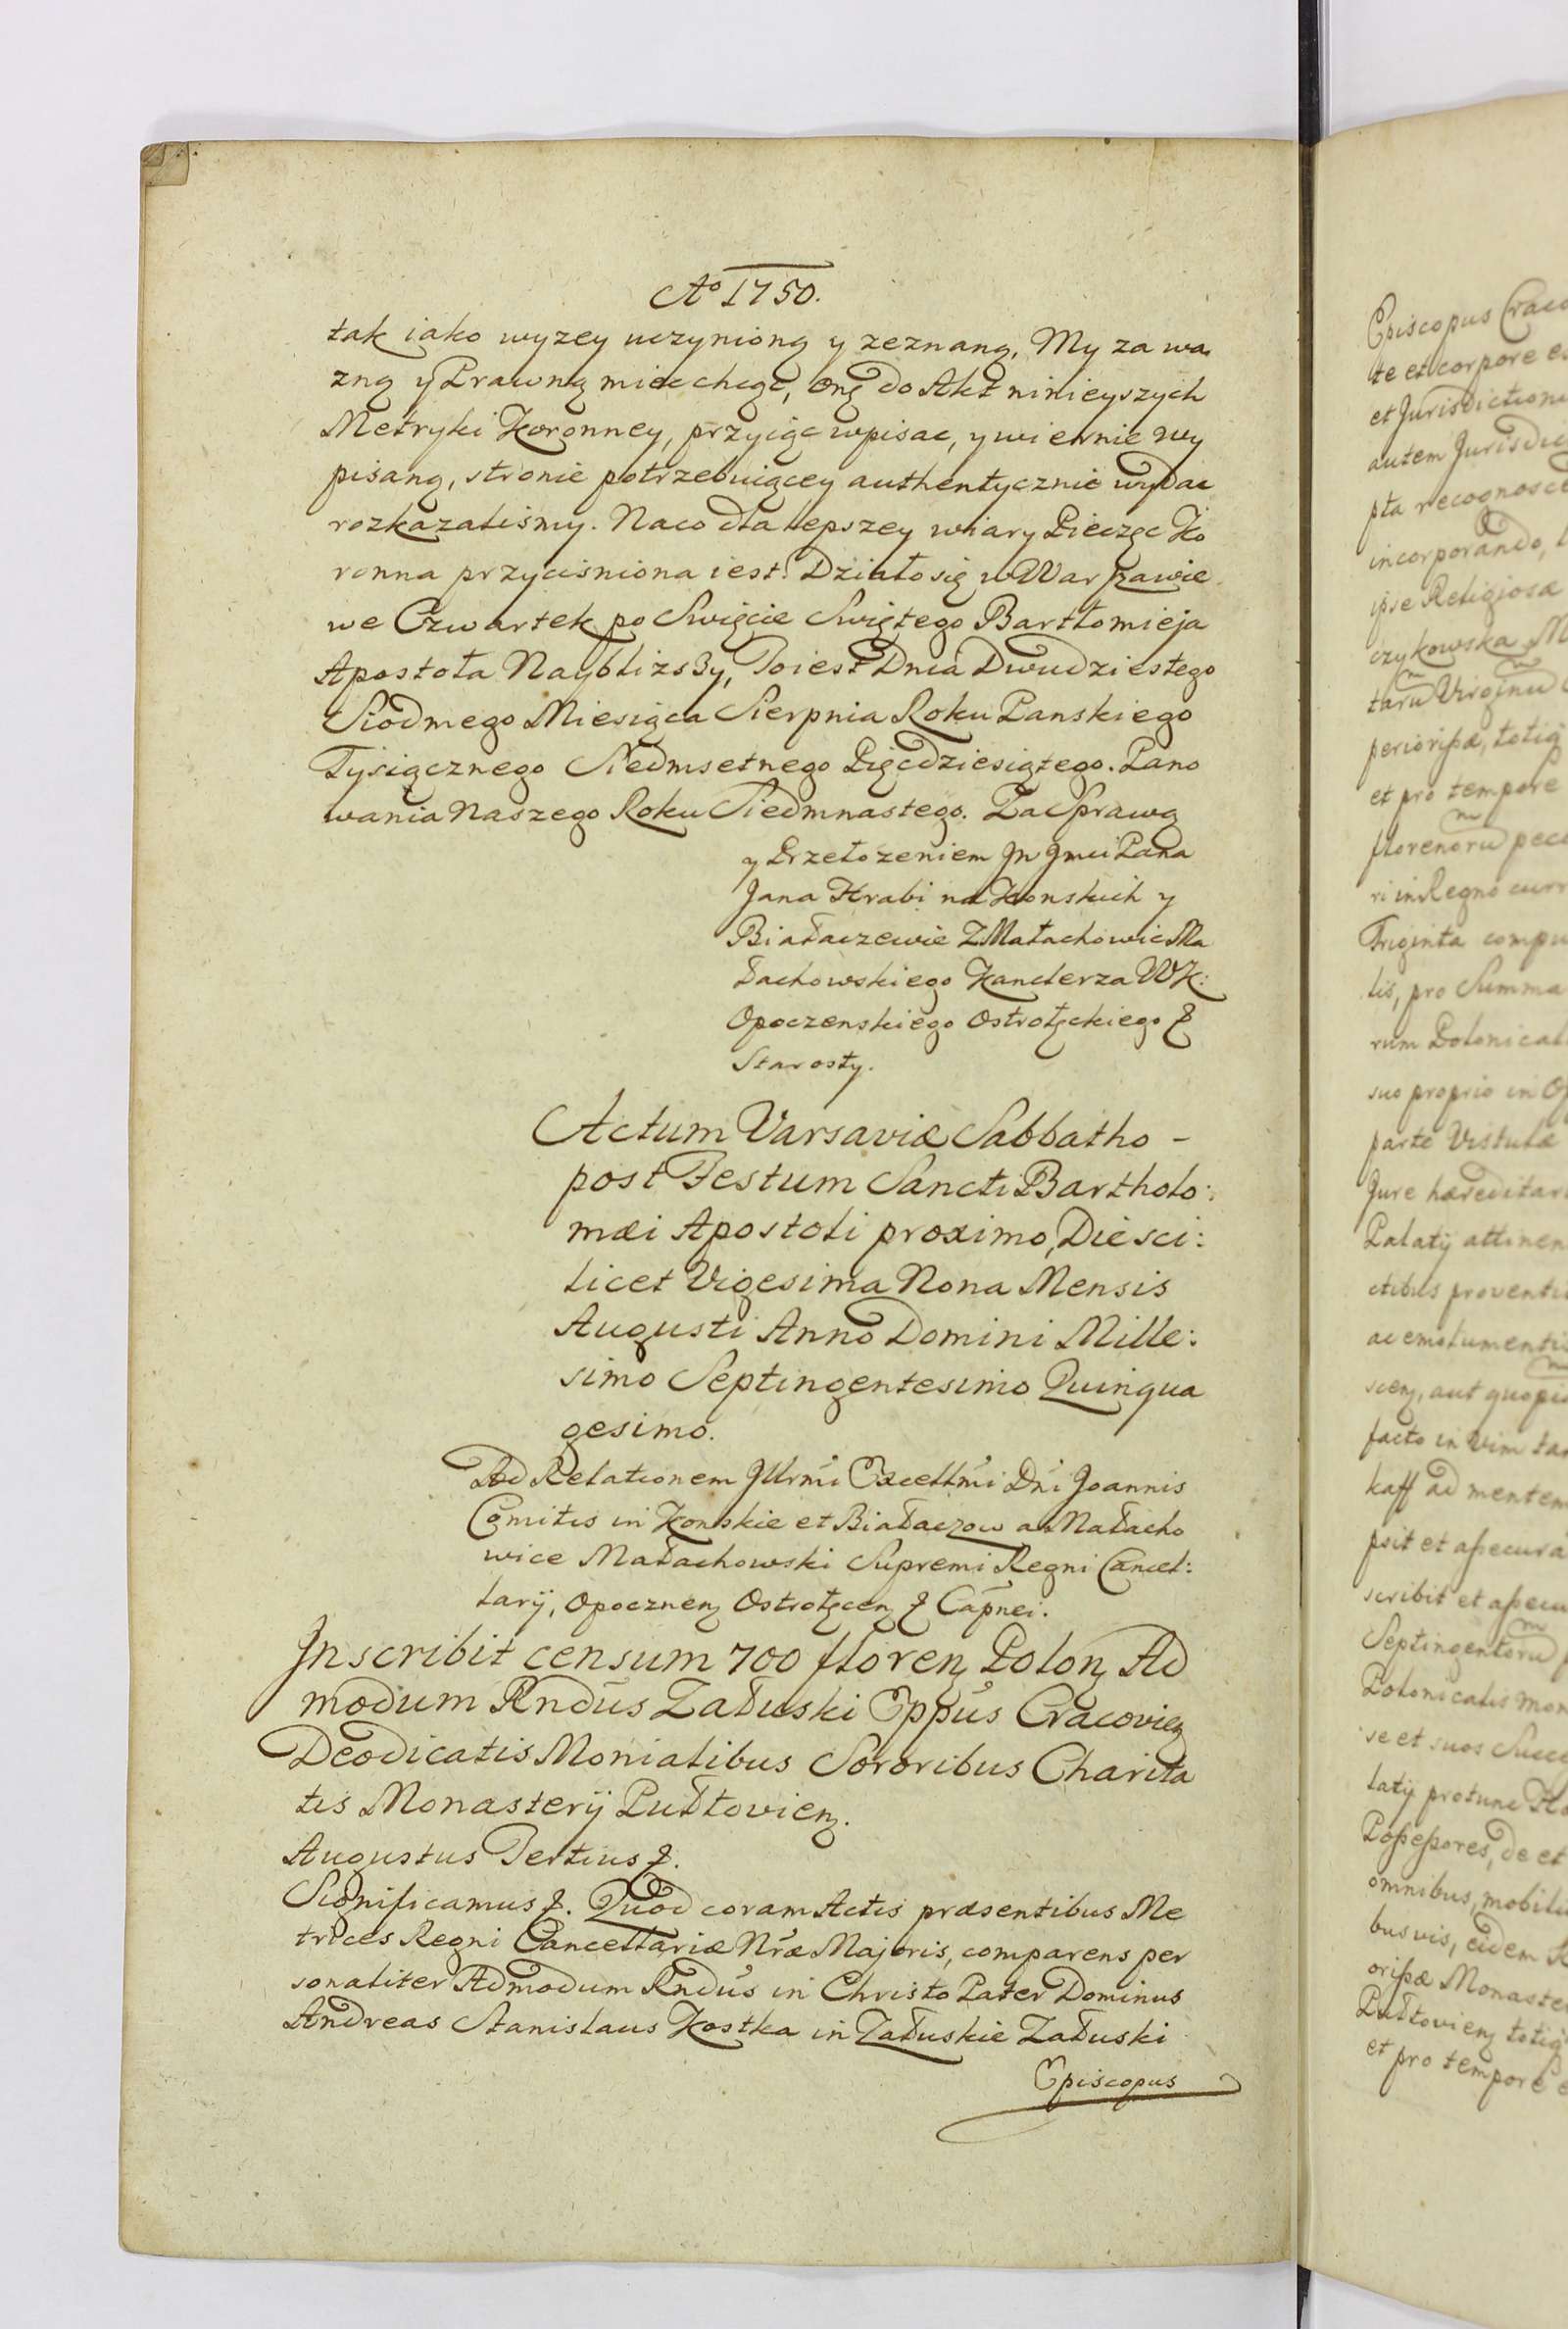 Aº 1750.
tak iako wyzey uczynioną y zeznaną, My za wa
zną y Prawną miec chcąc, onę do Akt ninieyszych
Metryki Koronney, przyiąc wpisac, y wiernie wy
pisaną, stronie potrzebuiącey authentycznie wydac
rozkazalismy. Naco dla lepszey wiary Pieczęc Ko
ronna przycisniona iest. Działo się w Warszawie
we Czwartek po Swięcie Swiętego Bartłomieja
Apostoła Nayblizszy, Toiest Dnia Dwudziestego
Siodmego Miesiąca Sierpnia Roku Panskiego
Tysiącznego Siedmsetnego Pięcdziesiątego. Pano
wania Naszego Roku Siedmnastego. Za Sprawą
y Przełozeniem Jn Jmci Pana
Jana Hrabi na Konskich y
Białaczewie Z Małachowic Ma
łachowskiego Kanclerza WK:
Opoczenskiego Ostrołęckiego &
Starosty.
Actum Varsaviæ Sabbatho -
post Festum Sancti Bartholo:
mæi Apostoli proximo, Die sci:
licet Vigesima Nona Mensis
Augusti Anno Domini Mille:
simo Septingentesimo Quinqua
gesimo.
Ad Relationem Jllrmi Excellmi Dni Joannis
Comitis in Konskie et Białaczow a Małacho
wice Małachowski Supremi Regni Cancel:
larij, Opocznen Ostrołęcen & Capnei.
Jnscribit censum 700 floren Polon Ad
modum Rndus Załuski Eppus Cracovien
Deodicatis Monialibus Sororibus Charita
tis Monasterij Pułtovien.
Augustus Tertius &.
Significamus &. Quod coram Actis præsentibus Me
trices Regni Cancellariæ Nræ Majoris, comparens per
sonaliter Admodum Rndus in Christo Pater Dominus
Andreas Stanislaus Kostka in Załuskie Załuski
Episcopus
Episcopus
te et corpore
et Jurisdictioni
pta recognoscit
incorporando,
ipse Religiosæ
czykowska
et pro tempore
ri in Regno
Triginta
lis, pro Summa
rum
suo proprio in
parte Vistulæ
Jure
Palatij
ac
facto in Vim
kaff ad mentem
psit et
scribit et
se et suos
latij protunc
Possessores, de et
omnibus,
busvis, eidem
et pro tempore